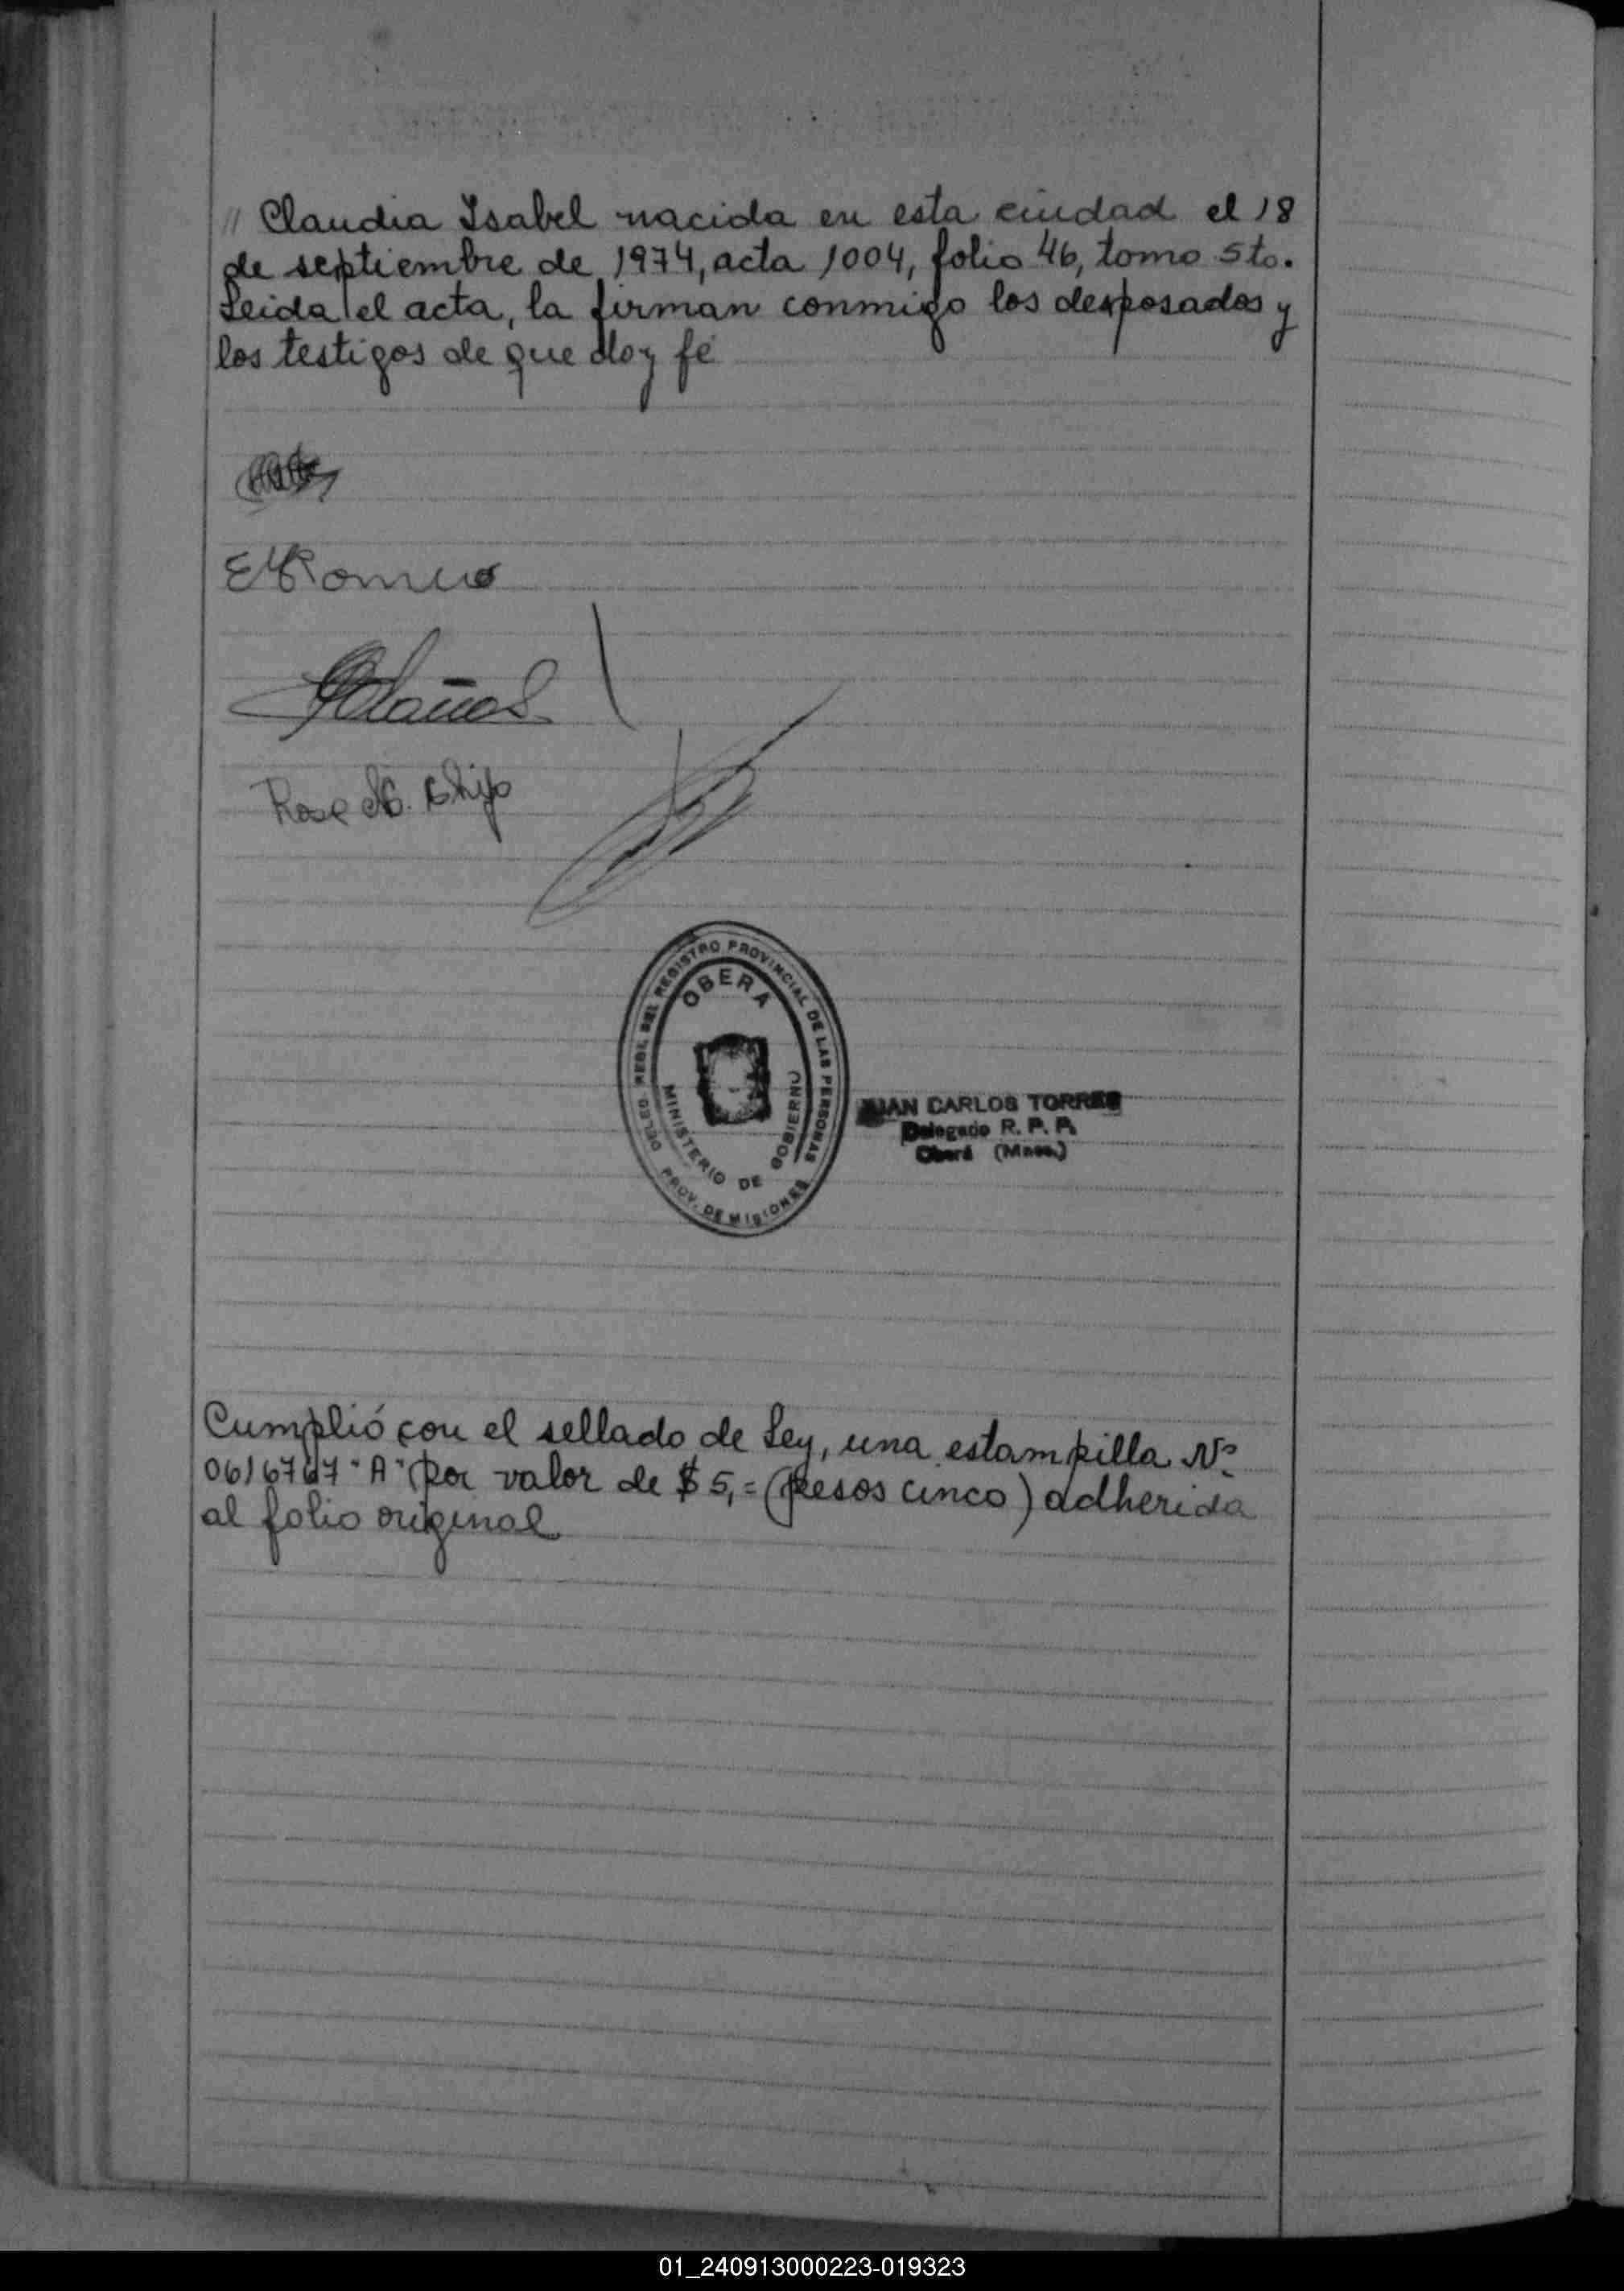 // Claudia Isabel nacida en esta ciudad el 18
de septiembre de 1974, acta 1004, folio 46, tomo 5to.
Leida el acta, la firman conmigo los desposados y
los testigos de que doy fé
Rosa
OBERA
DELEG. REGL. DEL REGISTRO PROVINCIAL DE LAS PERSONAS
MINISTERIO DE GOBIERNO
PROV. DE MISIONES
JUAN CARLOS TORRES
Delegado R. P. P.
Oberá (Mnes.)
Cumplió con el sellado de Ley, una estampilla Nº
0616767 "A" por valor de $ 5,= (pesos cinco) adherida
al folio original
01_240913000223-019323